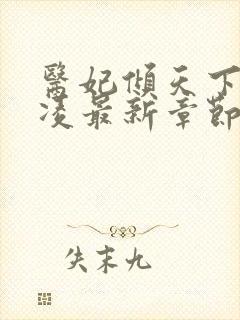 醫妃傾天下
凌最新章節
失末九